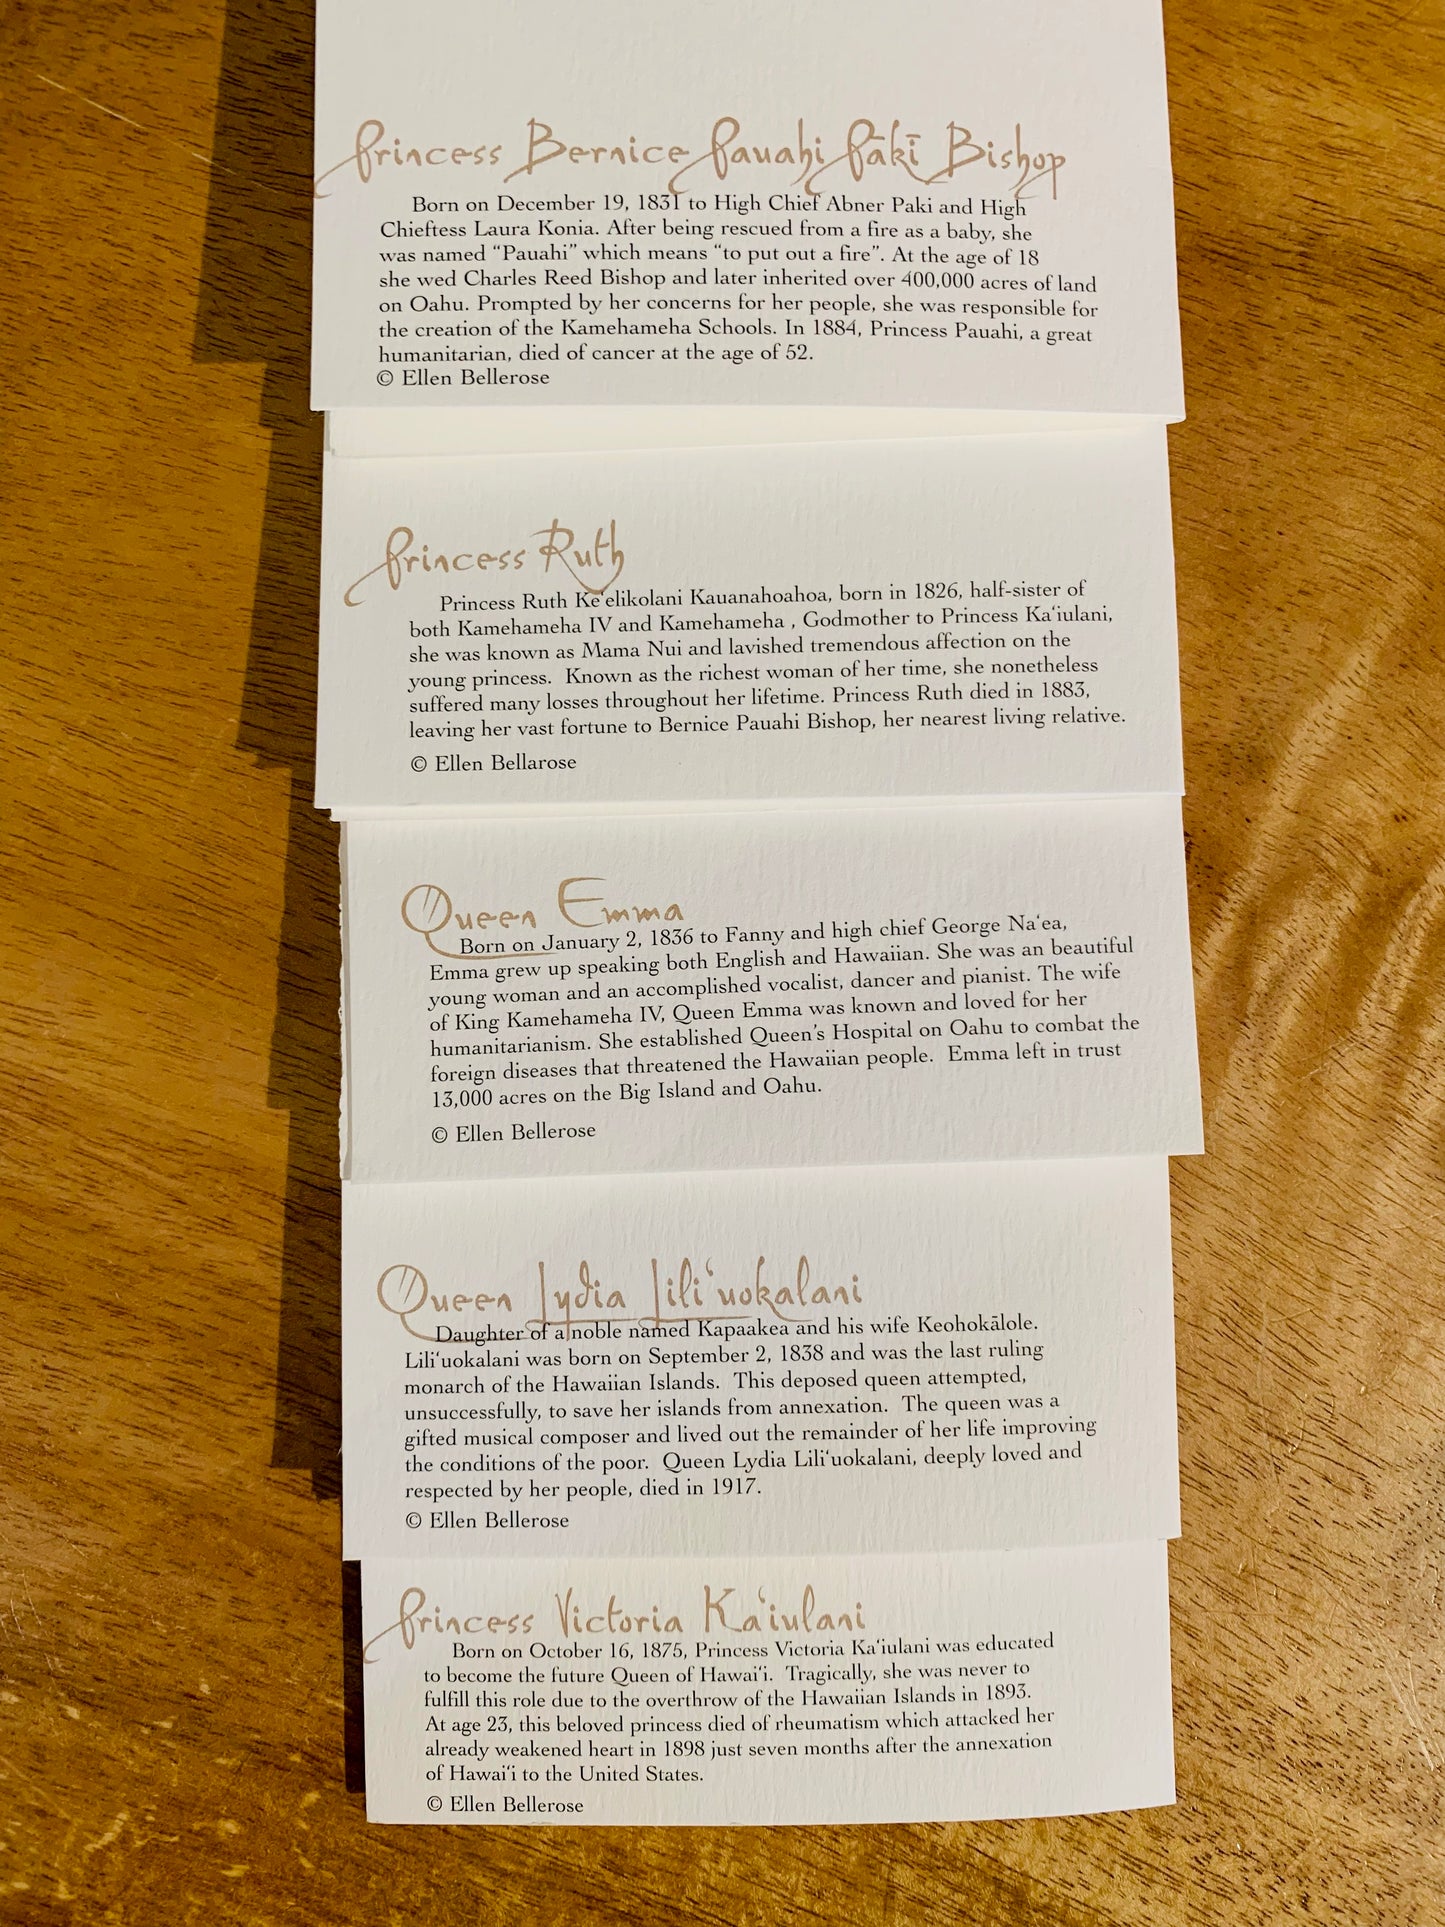 Princess Bernice Pauahi Pākī Bishop
Born on December 19, 1831 to High Chief Abner Paki and High
Chieftess Laura Konia. After being rescued from a fire as a baby, she
was named “Pauahi” which means “to put out a fire”. At the age of 18
she wed Charles Reed Bishop and later inherited over 400,000 acres of land
on Oahu. Prompted by her concerns for her people, she was responsible for
the creation of the Kamehameha Schools. In 1884, Princess Pauahi, a great
humanitarian, died of cancer at the age of 52.
© Ellen Bellerose
Princess Ruth
Princess Ruth Keʻelikolani Kauanahoahoa, born in 1826, half-sister of
both Kamehameha IV and Kamehameha , Godmother to Princess Kaʻiulani,
she was known as Mama Nui and lavished tremendous affection on the
young princess.  Known as the richest woman of her time, she nonetheless
suffered many losses throughout her lifetime. Princess Ruth died in 1883,
leaving her vast fortune to Bernice Pauahi Bishop, her nearest living relative.
© Ellen Bellarose
Queen Emma
Born on January 2, 1836 to Fanny and high chief George Naʻea,
Emma grew up speaking both English and Hawaiian. She was an beautiful
young woman and an accomplished vocalist, dancer and pianist. The wife
of King Kamehameha IV, Queen Emma was known and loved for her
humanitarianism. She established Queen’s Hospital on Oahu to combat the
foreign diseases that threatened the Hawaiian people.  Emma left in trust
13,000 acres on the Big Island and Oahu.
© Ellen Bellerose
Queen Lydia Liliʻuokalani
Daughter of a noble named Kapaakea and his wife Keohokālole.
Liliʻuokalani was born on September 2, 1838 and was the last ruling
monarch of the Hawaiian Islands.  This deposed queen attempted,
unsuccessfully, to save her islands from annexation.  The queen was a
gifted musical composer and lived out the remainder of her life improving
the conditions of the poor.  Queen Lydia Liliʻuokalani, deeply loved and
respected by her people, died in 1917.
© Ellen Bellerose
Princess Victoria Kaʻiulani
Born on October 16, 1875, Princess Victoria Kaʻiulani was educated
to become the future Queen of Hawaiʻi.  Tragically, she was never to
fulfill this role due to the overthrow of the Hawaiian Islands in 1893.
At age 23, this beloved princess died of rheumatism which attacked her
already weakened heart in 1898 just seven months after the annexation
of Hawaiʻi to the United States.
© Ellen Bellerose